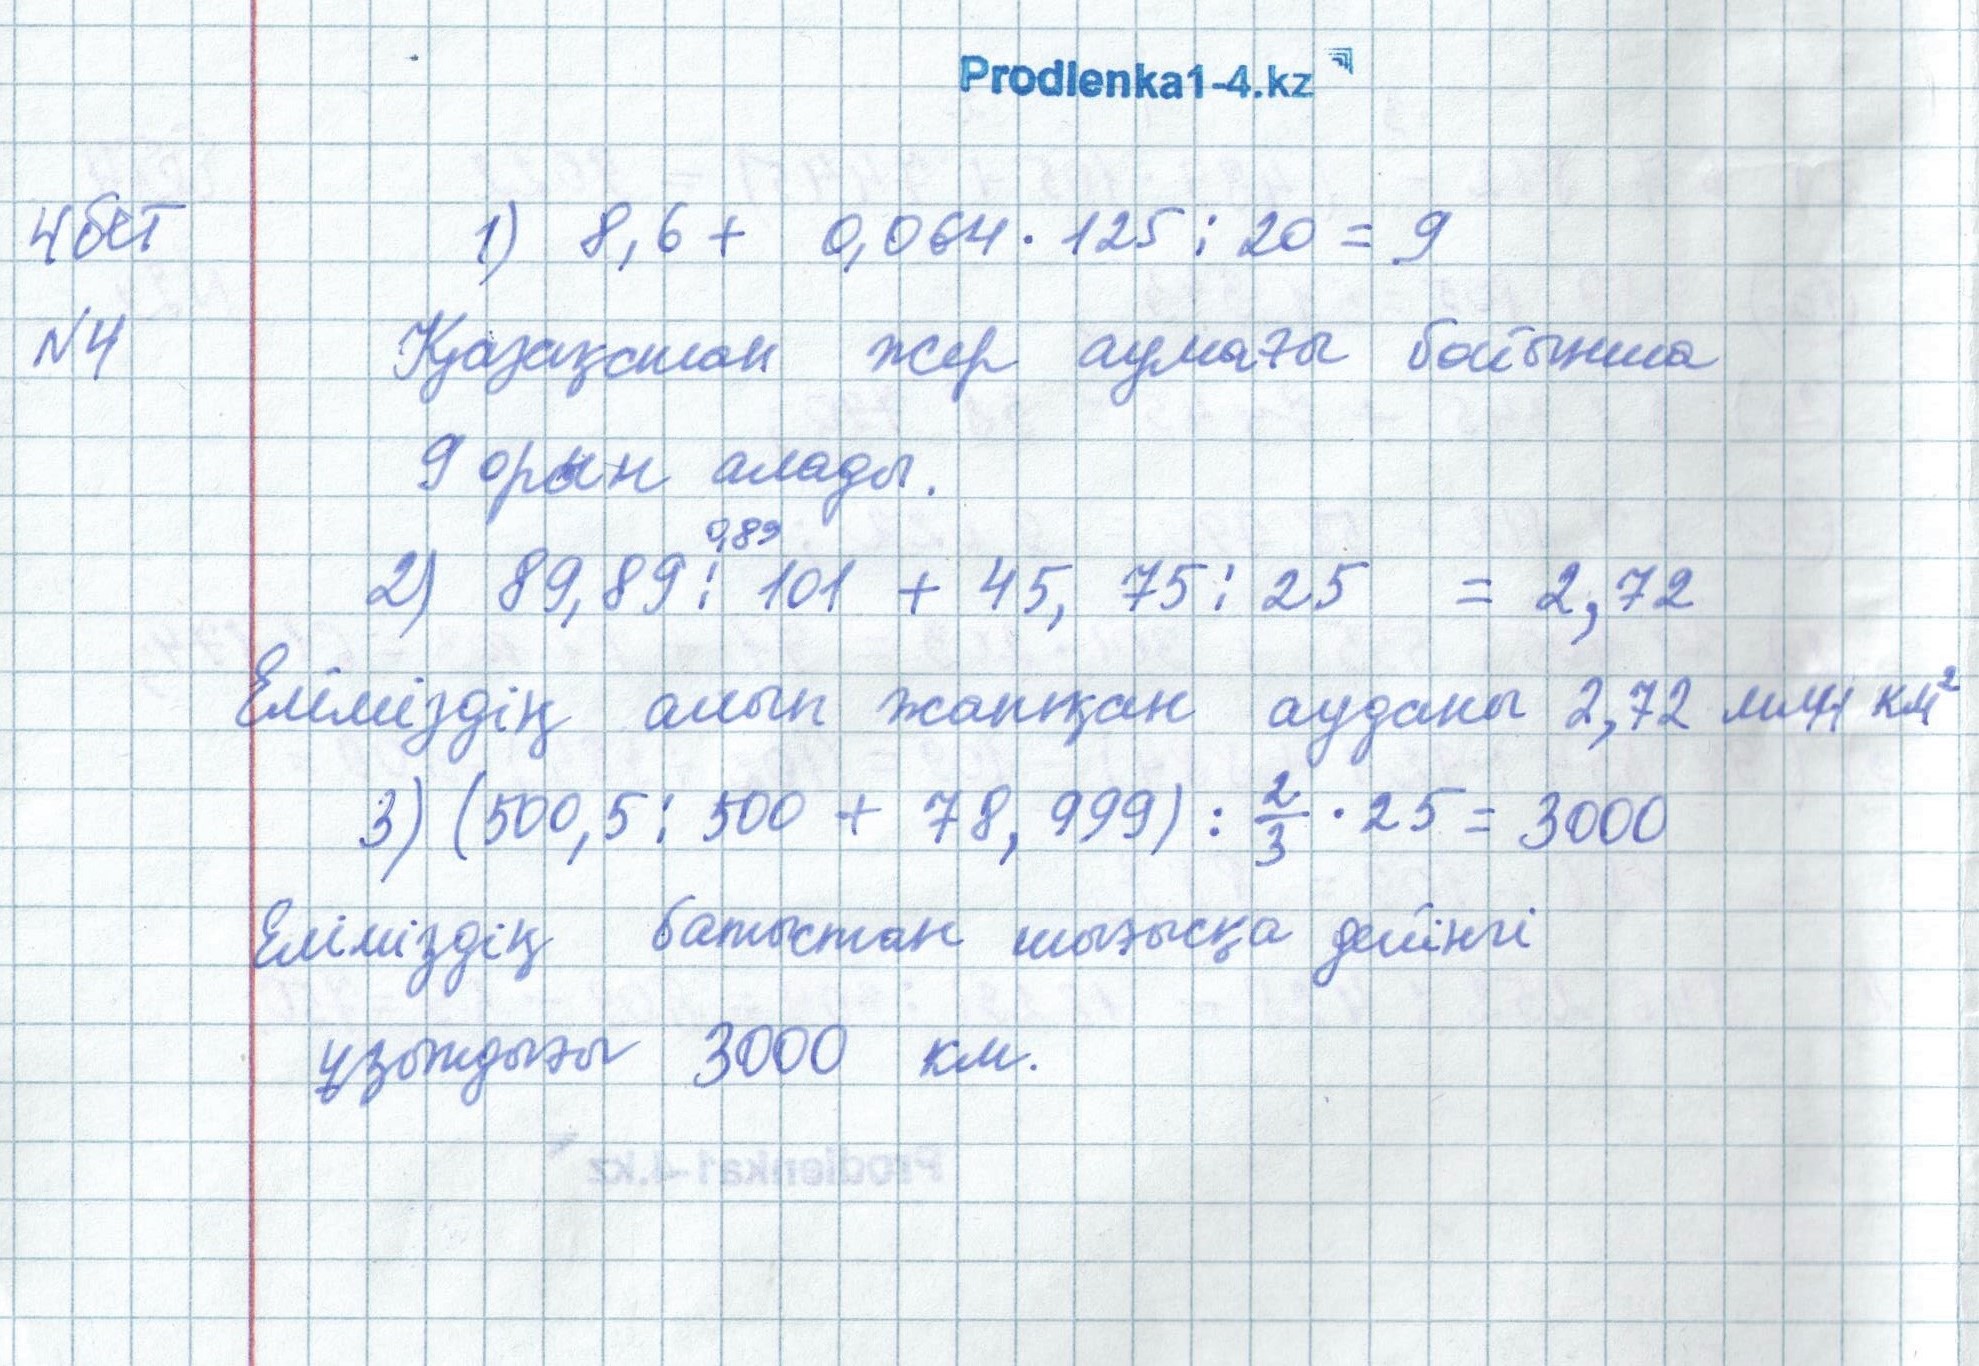 Prodlenka1-4.kz
4 бет 1) 8,6 + 0,064 · 125 : 20 = 9
№4 Қазақстан жер аумағы бойынша
9 орын алады.
0,89
2) 89,89 : 101 + 45,75 : 25 = 2,72
Еліміздің алып жатқан ауданы 2,72 млн км²
3) (500,5 : 500 + 78,999) : 2/3 · 25 = 3000
Еліміздің батыстан шығысқа дейінгі
ұзындығы 3000 км.
Prodlenka1-4.kz